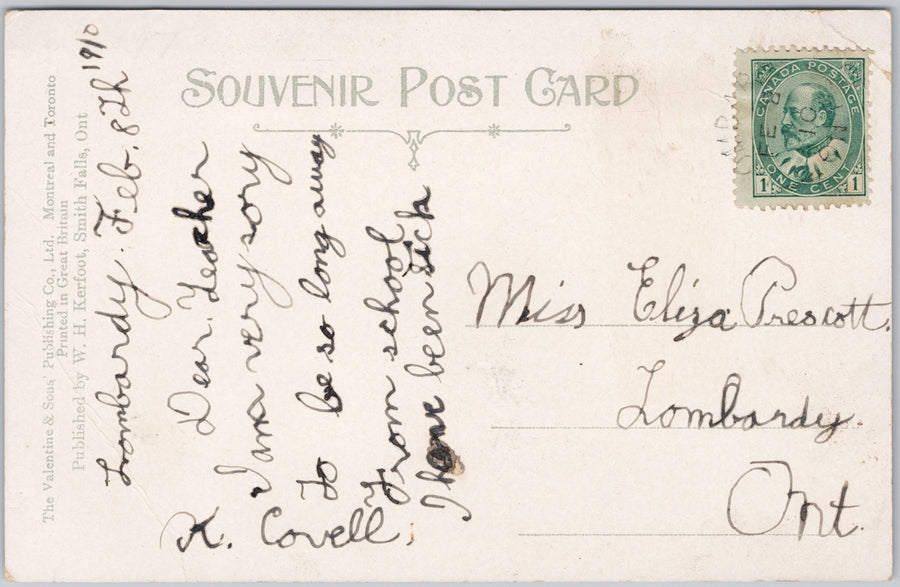 SOUVENIR POST CARD
The Valentine & Sons' Publishing Co., Ltd. Montreal and Toronto
Printed in Great Britain
Published by W. H. Kerfoot, Smith Falls, Ont
Lombardy. Feb. 8th 1910
Dear Teacher
I am very sory
to be so long away
from school
I have been sick
K. Covell.
CANADA POSTAGE
1 ONE CENT 1
FE 8
10
Miss Eliza Prescott.
Lombardy.
Ont.